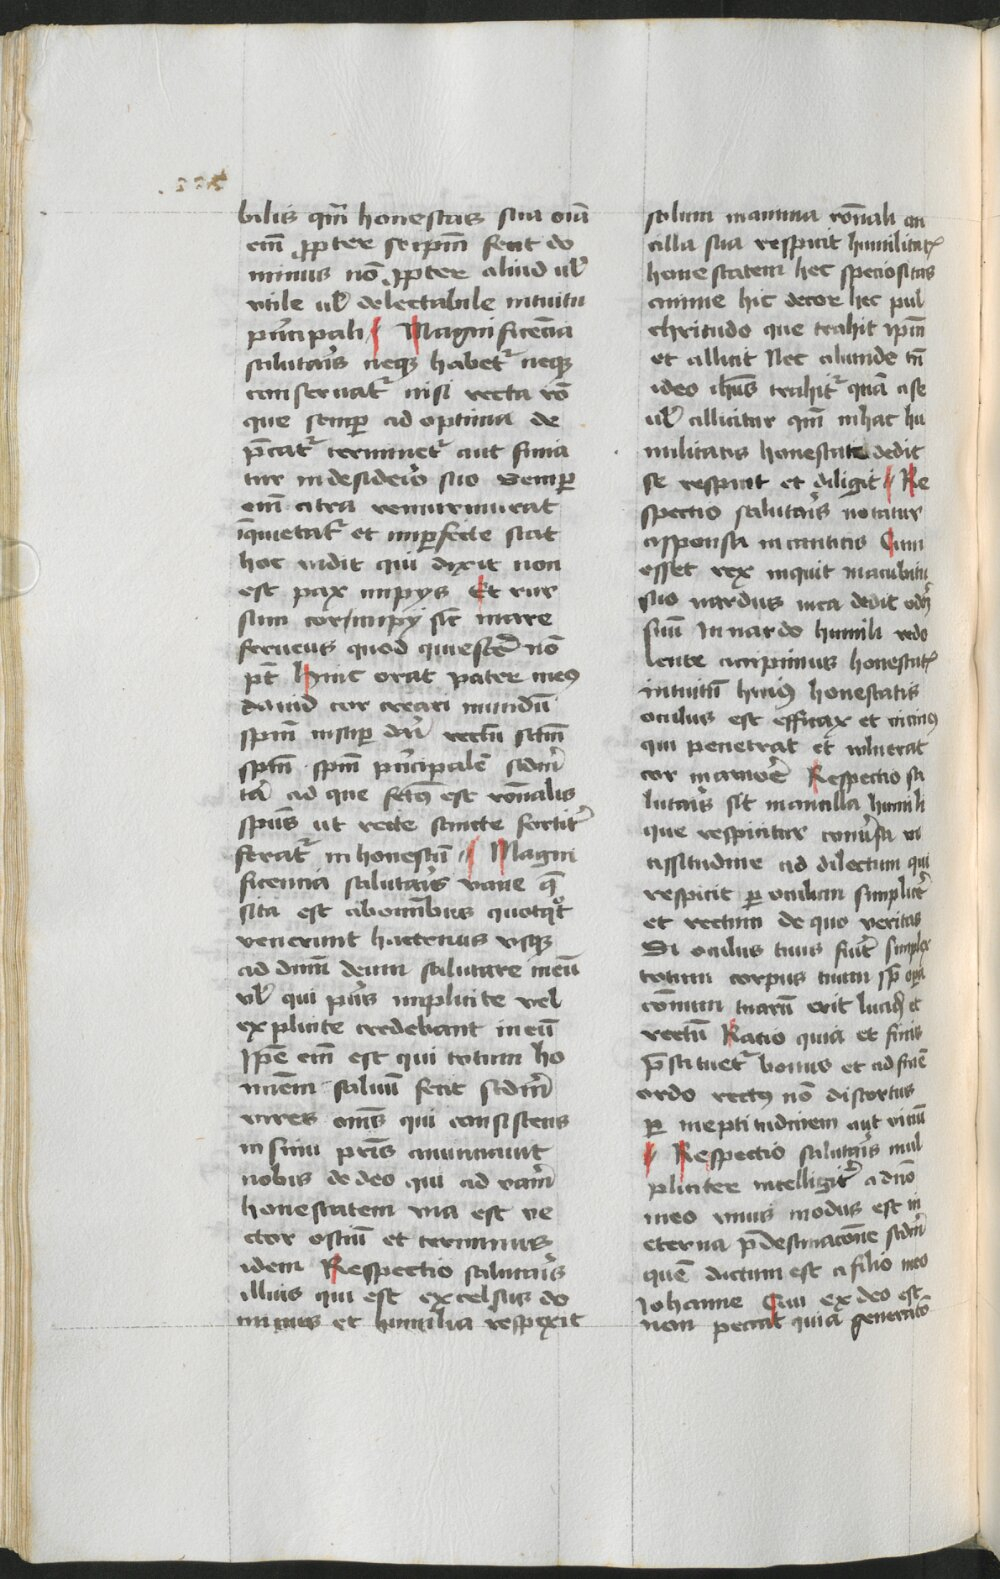 bilis qm̄ honestas sua oia
em̄ propter se ipm̄ fecit do
minus nō propter aliud ul̄
vtile ul̄ delectabile intuitu
prīcipali Magnificēcia
salutaris neqꝫ habetr̄ neqꝫ
conseruatr̄ nisi recta rō
que semp ad optima de
p̄catr̄ terminetr̄ aut finia
tur in desiderio suo Semp
em̄ citra remurmurat
īquietatr̄ et imperfecte stat
hoc vidit qui dixit non
est pax impijs Et rur
sum cor impij sic̄ mare
feruens quod quiescere nō
pt̄ Hinc orat pater meꝰ
dauid cor creari mundū
spm̄ insuper dari rectū sc̄m
spm̄ spm̄ prīcipalē scdm̄
ad que fctūs est rōnalis
spūs ut recte sancte fortitr̄
feratr̄ in honestū Magni
ficencia salutaris vane q̄
sita est ab omībus quotqt̄
venerunt hactenus vsqꝫ
ad dnm̄ deum salutare meū
ul̄ qui prius implicite vel
explicite credebant in eū
Ipse em̄ est qui totum ho
minēm saluū fecit scdm̄
vires oms̄ qui consistens
in sinu pris̄ annuncciauit
nobis de deo qui ad veram
honestatem via est ve
ctor ostiū et terminus
idem Respectio salutaris
illius qui est excelsus do
minus et humilia respexit
solum in anima rōnali an
cilla sua respicit humilitatꝫ
honestatem hec speciositas
anime hic decor hec pul
chritudo que trahit ipm̄
et allicit Nec aliunde tn̄
ideo ihūs trahitr̄ quā a se
ul̄ allicitur qm̄ in hac hu
militatis honestate dedit
se respicit et diligit Re
spectio salutaris notatur
a sponsa in canticis Cum
esset rex inquit in accubitu
suo nardus mea dedit odorē
suū In nardo humili redo
lente accipimus honestatꝫ
intuitū huiꝰ honestatis
oculus est efficax et vicinꝰ
qui penetrat et vulnerat
cor in amore Respectio sa
lutaris fit in ancilla humili
que respicitur conuersa vi
cissitudine ad dilectum qui
respicit per oculum simplicē
et rectum de quo veritas
Si oculus tuus fuerit simplex
totum corpus tuum scz opa
cōmum tuarū erit lucidū et
rectū Ratio quia et finis
p̄stituetr̄ bonus et ad finē
ordo rectꝰ nō distortus
per ineptitudinem aut viciū
Respectio salutaris mul
pliciter intelligitr̄ a dno
meo vnus modus est in
eterna p̄destinacōne scdm̄
quē dictum est a filio meo
Iohanne Qui ex deo est
non peccat quia generatio